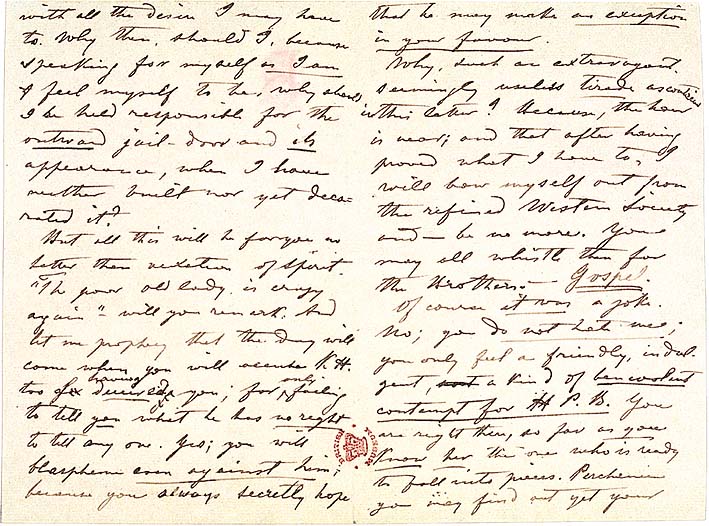 with all the desire I may have
to. Why then, should I, because
speaking for myself as I am
& feel myself to be, why should
I be held responsible for the
outward jail-door and its
appearance, when I have
neither built nor yet deco-
rated it?
But all this will be for you no
better than vexation of spirit.
"The poor old lady is crazy
again" – will you remark. And
let me prophecy that the day will
come when you will accuse K.H.
too of having deceived you; for only failing
to tell you what he has no right
to tell any one. Yes; you will
blaspheme even against him;
because you always secretly hope
that he may make an exception
in your favour.
Why, such an extravagant,
seemingly useless tirade as contained
in this letter? Because, the hour
is near; and that after having
proved what I have to, I
will bow myself out from
the refined Western Society
and — be no more. You
may all whistle then for
the Brothers: – Gospel.
Of course it was a joke.
No; you do not hate me;
you only feel a friendly, indul-
gent, a kind of benevolent
contempt for H P. B. You
are right there, so far as you
Know her the one who is ready
to fall into pieces. Perchance
you may find out yet your
BRITISH MUSEUM